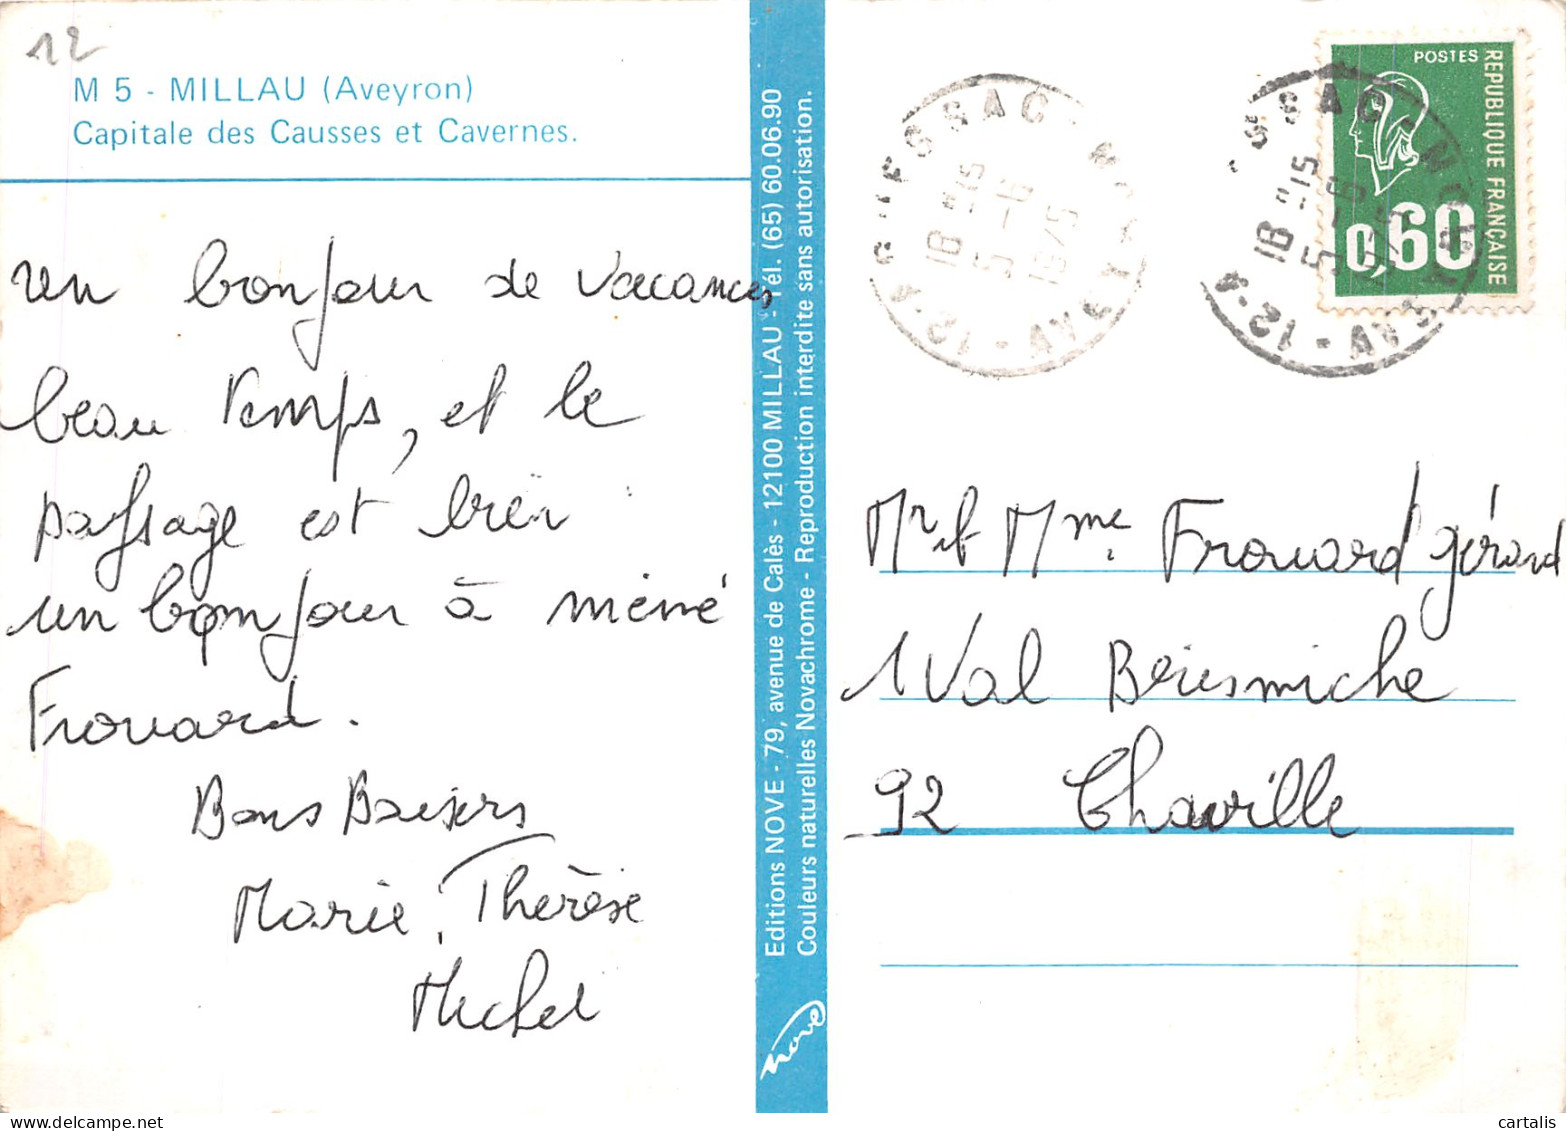 12
M 5 - MILLAU (Aveyron)
Capitale des Causses et Cavernes.
un bonjour de vacances
beau temps, et le
paysage est bien
un bonjour à mémé
Frouard.
Bons Baisers
Marie, Thérèse
Michel
Editions NOVE - 79, avenue de Calès - 12100 MILLAU - Tél. (65) 60.06.90
Couleurs naturelles Novachrome - Reproduction interdite sans autorisation.
Nove
18 H 15
5 - 8
1975
12 - AV
POSTES
REPUBLIQUE FRANÇAISE
0,60
18 H 15
5 - 8
1975
12 - AV
Mr et Mme Frouard gérard
1 Val
92 Chaville
cartalis